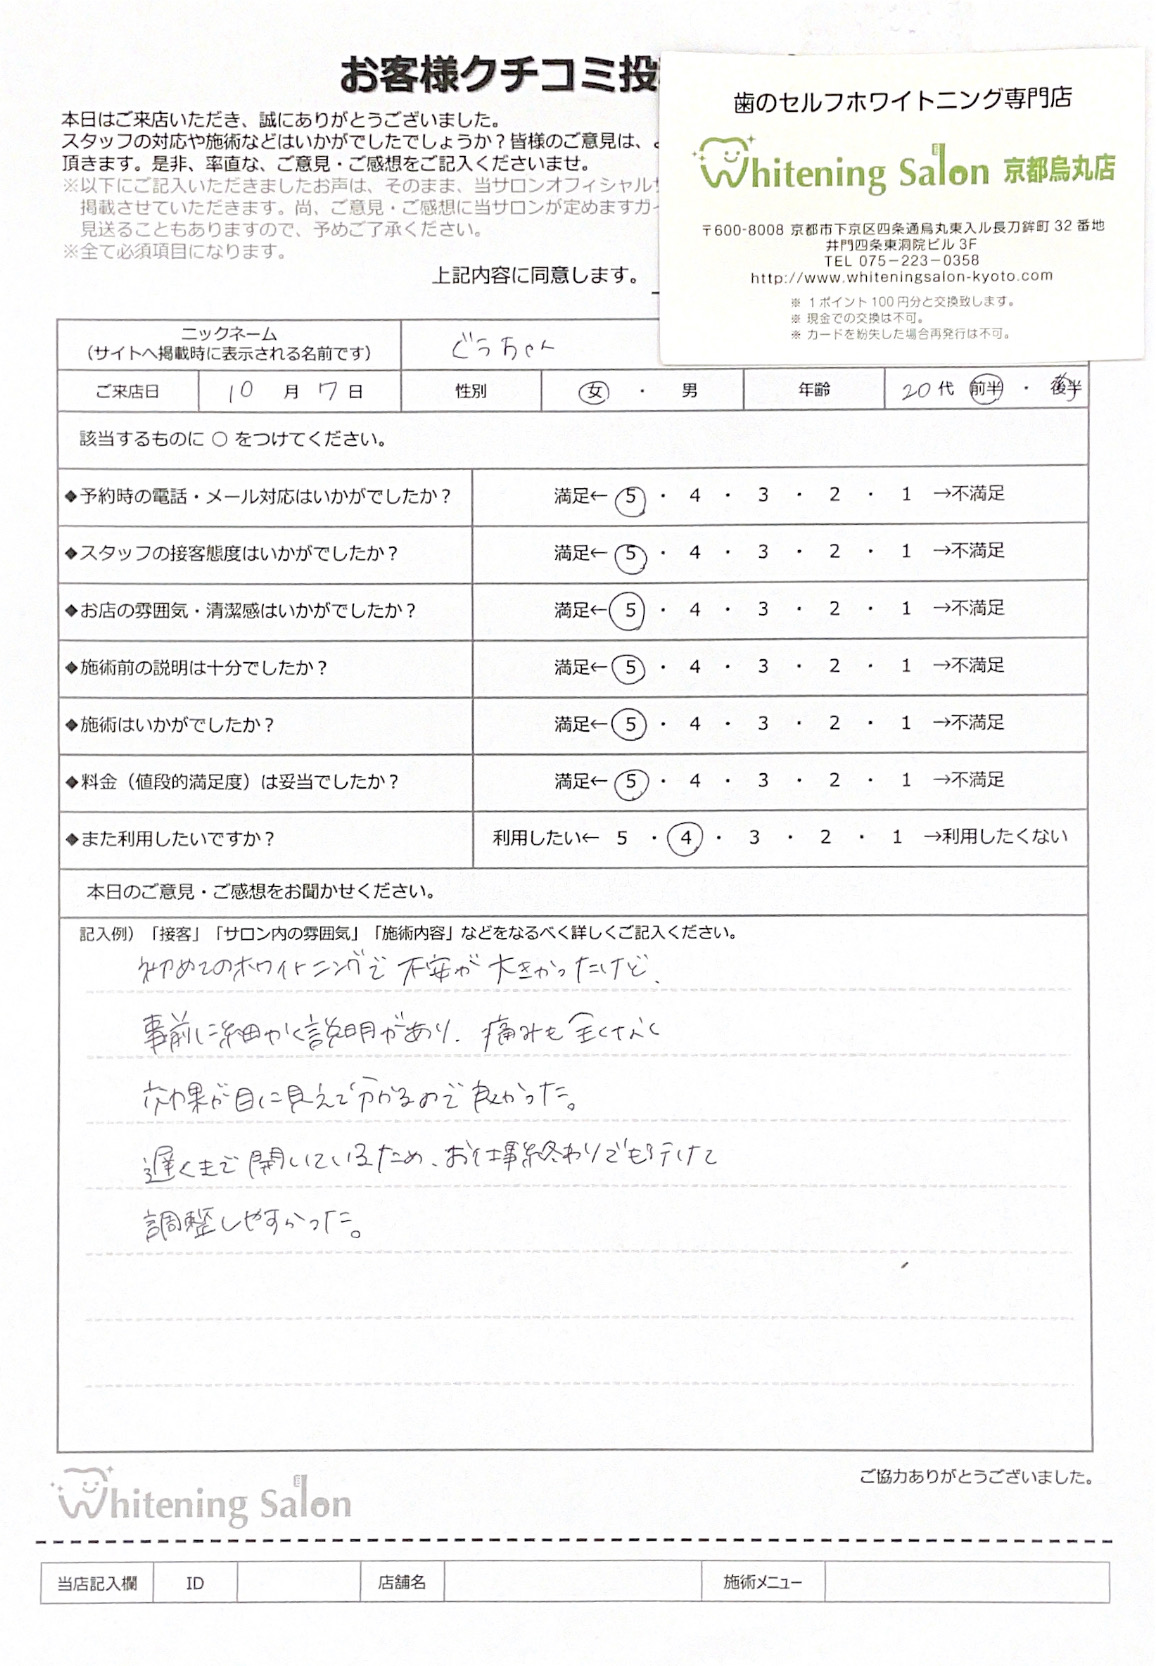 お客様クチコミ投
歯のセルフホワイトニング専門店
Whitening Salon 京都烏丸店
〒600-8008 京都市下京区四条通烏丸東入ル長刀鉾町 32 番地
井門四条東洞院ビル 3F
TEL 075-223-0358
http://www.whiteningsalon-kyoto.com
※ 1ポイント 100 円分と交換致します。
※ 現金での交換は不可。
※ カードを紛失した場合再発行は不可。
本日はご来店いただき、誠にありがとうございました。
スタッフの対応や施術などはいかがでしたでしょうか?皆様のご意見は、
頂きます。是非、率直な、ご意見・ご感想をご記入くださいませ。
※以下にご記入いただきましたお声は、そのまま、当サロンオフィシャル
掲載させていただきます。尚、ご意見・ご感想に当サロンが定めますガイ
見送ることもありますので、予めご了承ください。
※全て必須項目になります。
上記内容に同意します。
ニックネーム
（サイトへ掲載時に表示される名前です） どうちゃん
ご来店日 10 月 7 日 性別 女 ・ 男 年齢 20 代 前半 ・ 後半
該当するものに ○ をつけてください。
◆予約時の電話・メール対応はいかがでしたか? 満足← 5 ・ 4 ・ 3 ・ 2 ・ 1 →不満足
◆スタッフの接客態度はいかがでしたか? 満足← 5 ・ 4 ・ 3 ・ 2 ・ 1 →不満足
◆お店の雰囲気・清潔感はいかがでしたか? 満足← 5 ・ 4 ・ 3 ・ 2 ・ 1 →不満足
◆施術前の説明は十分でしたか? 満足← 5 ・ 4 ・ 3 ・ 2 ・ 1 →不満足
◆施術はいかがでしたか? 満足← 5 ・ 4 ・ 3 ・ 2 ・ 1 →不満足
◆料金（値段的満足度）は妥当でしたか? 満足← 5 ・ 4 ・ 3 ・ 2 ・ 1 →不満足
◆また利用したいですか? 利用したい← 5 ・ 4 ・ 3 ・ 2 ・ 1 →利用したくない
本日のご意見・ご感想をお聞かせください。
記入例）「接客」「サロン内の雰囲気」「施術内容」などをなるべく詳しくご記入ください。
初めてのホワイトニングで不安が大きかったけど、
事前に細かく説明があり、痛みも全くなく
効果が目に見えて分かるので良かった。
遅くまで開いているため、お仕事終わりでも行けて
調整しやすかった。
ご協力ありがとうございました。
Whitening Salon
当店記入欄 ID 店舗名 施術メニュー